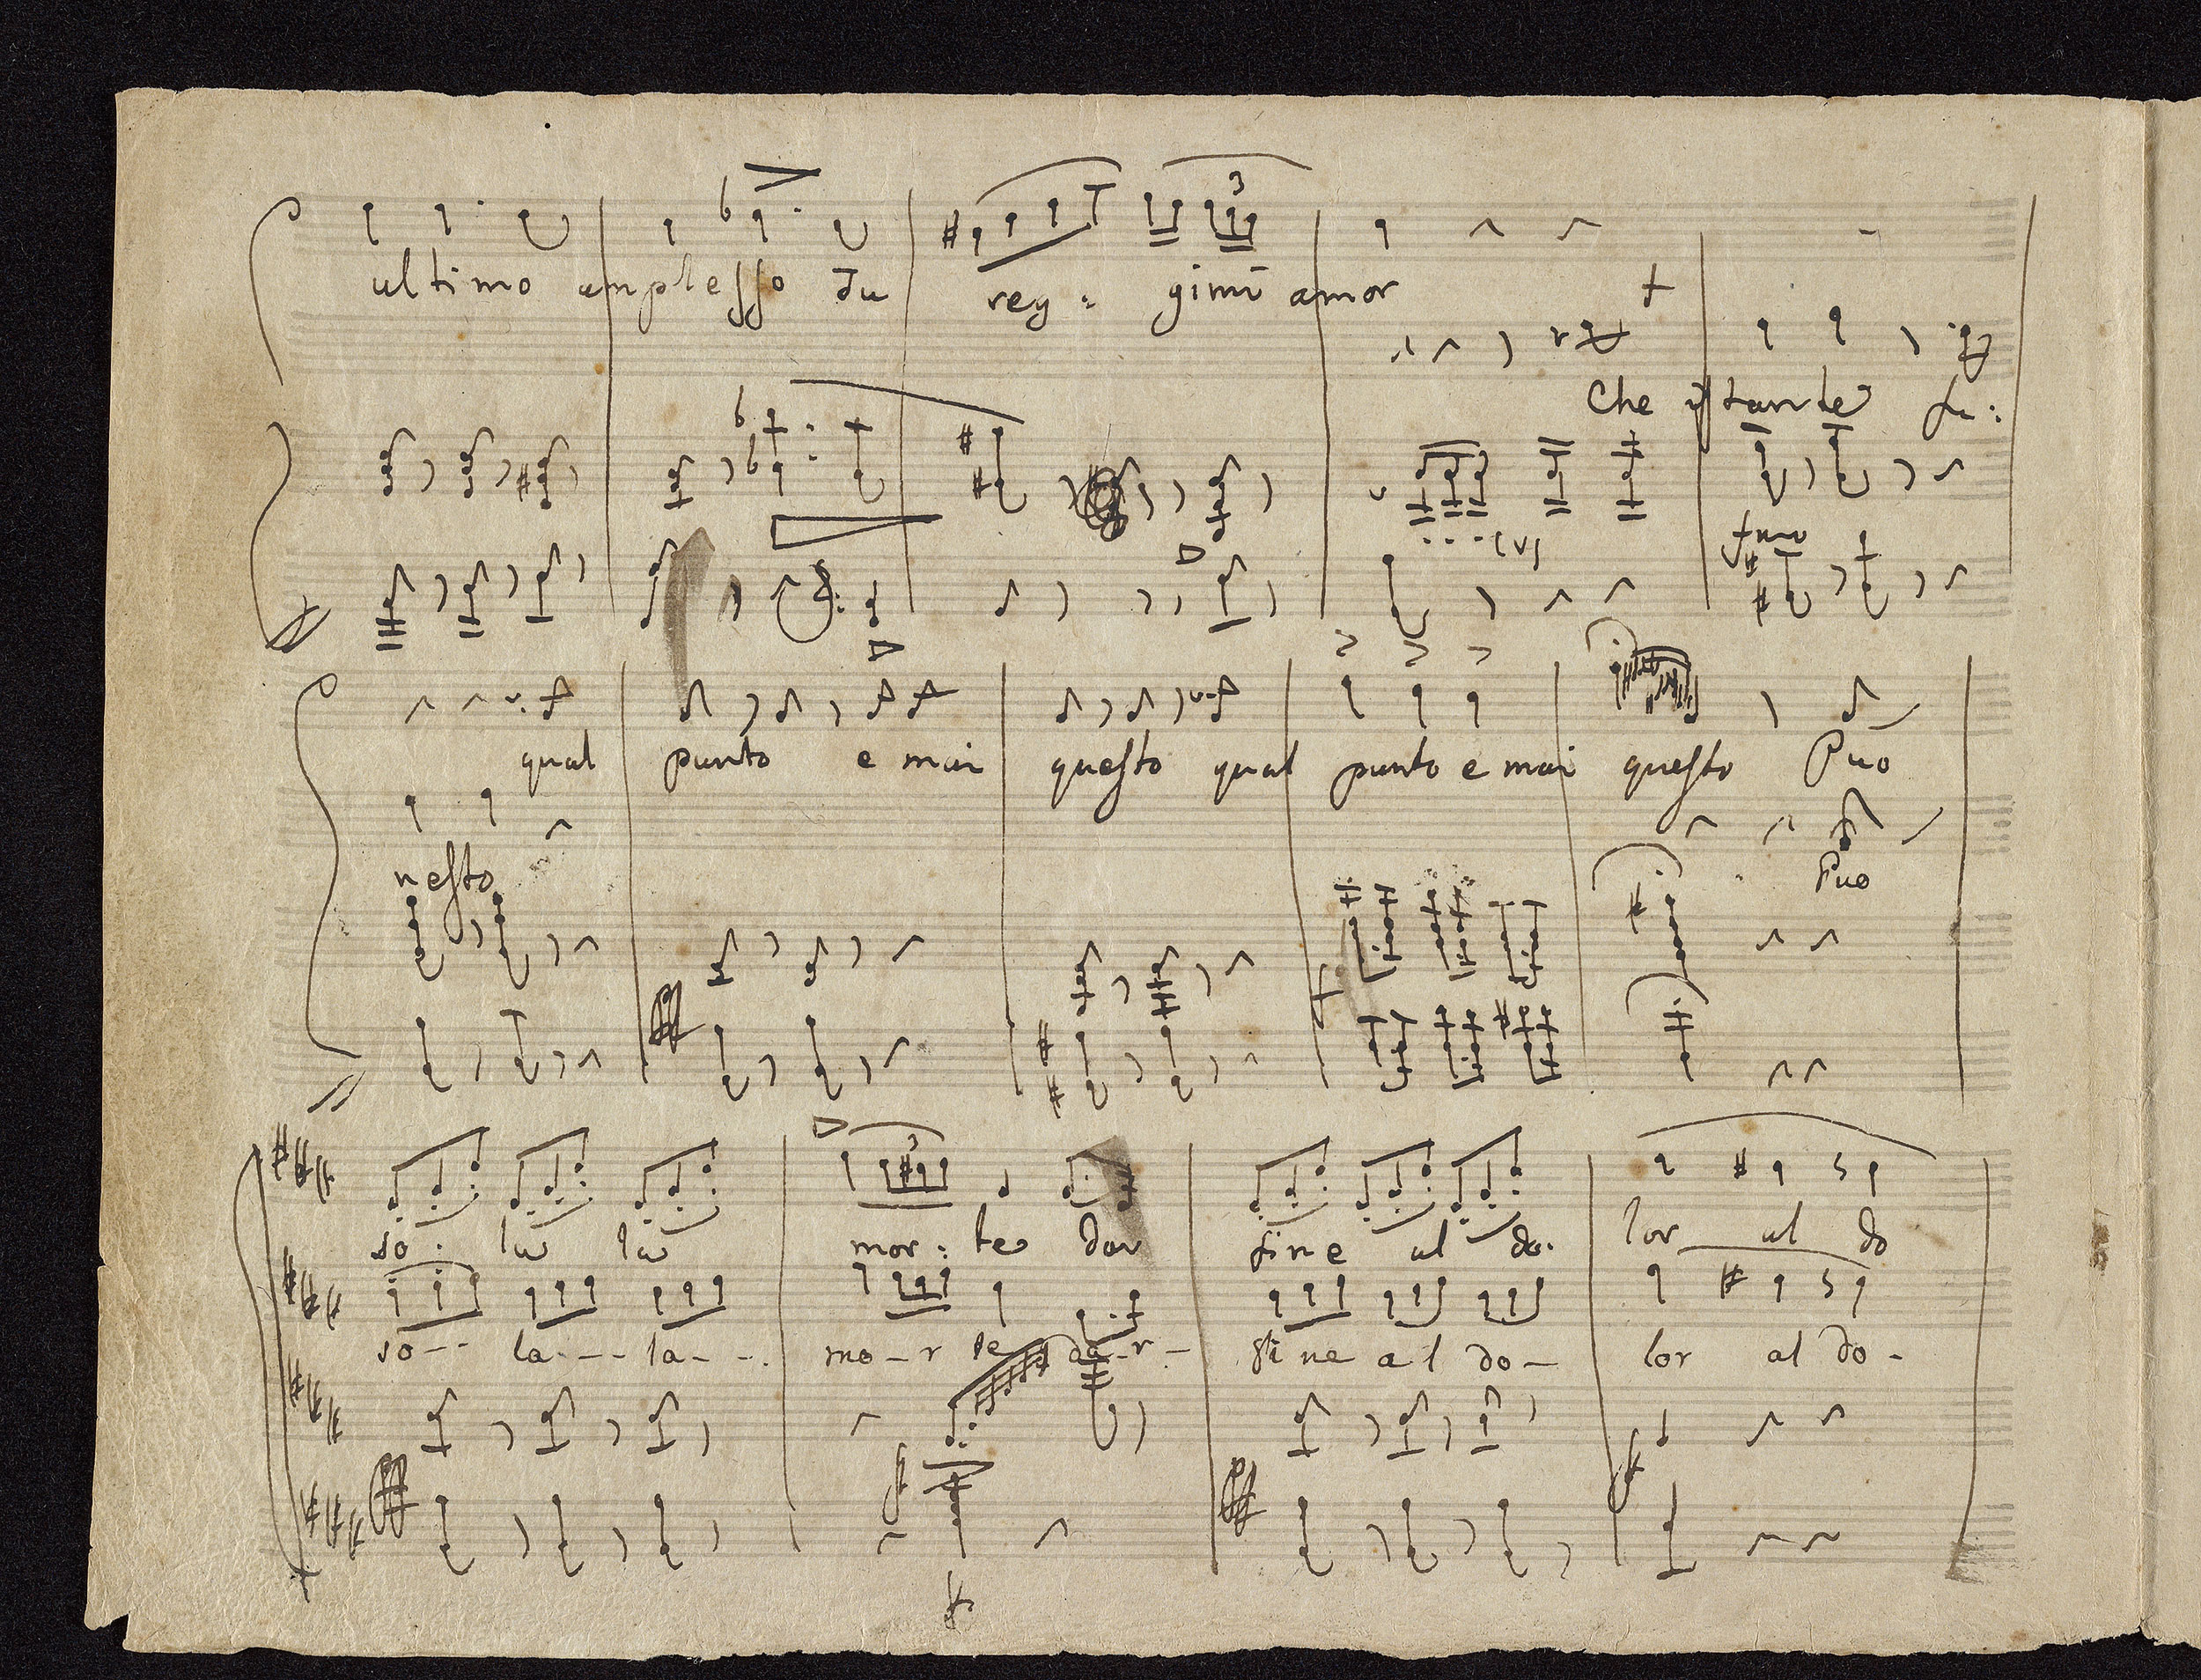 ultimo amplesso Tu reg = gimi amor
Che istante fu:
qual punto e mai questo qual punto e mai questo Può
nesto
Puo
so : la la mor : te dar fine al do: lor al do
so-- la--- la-- mo-r te da-r- fine al do- lor al do-